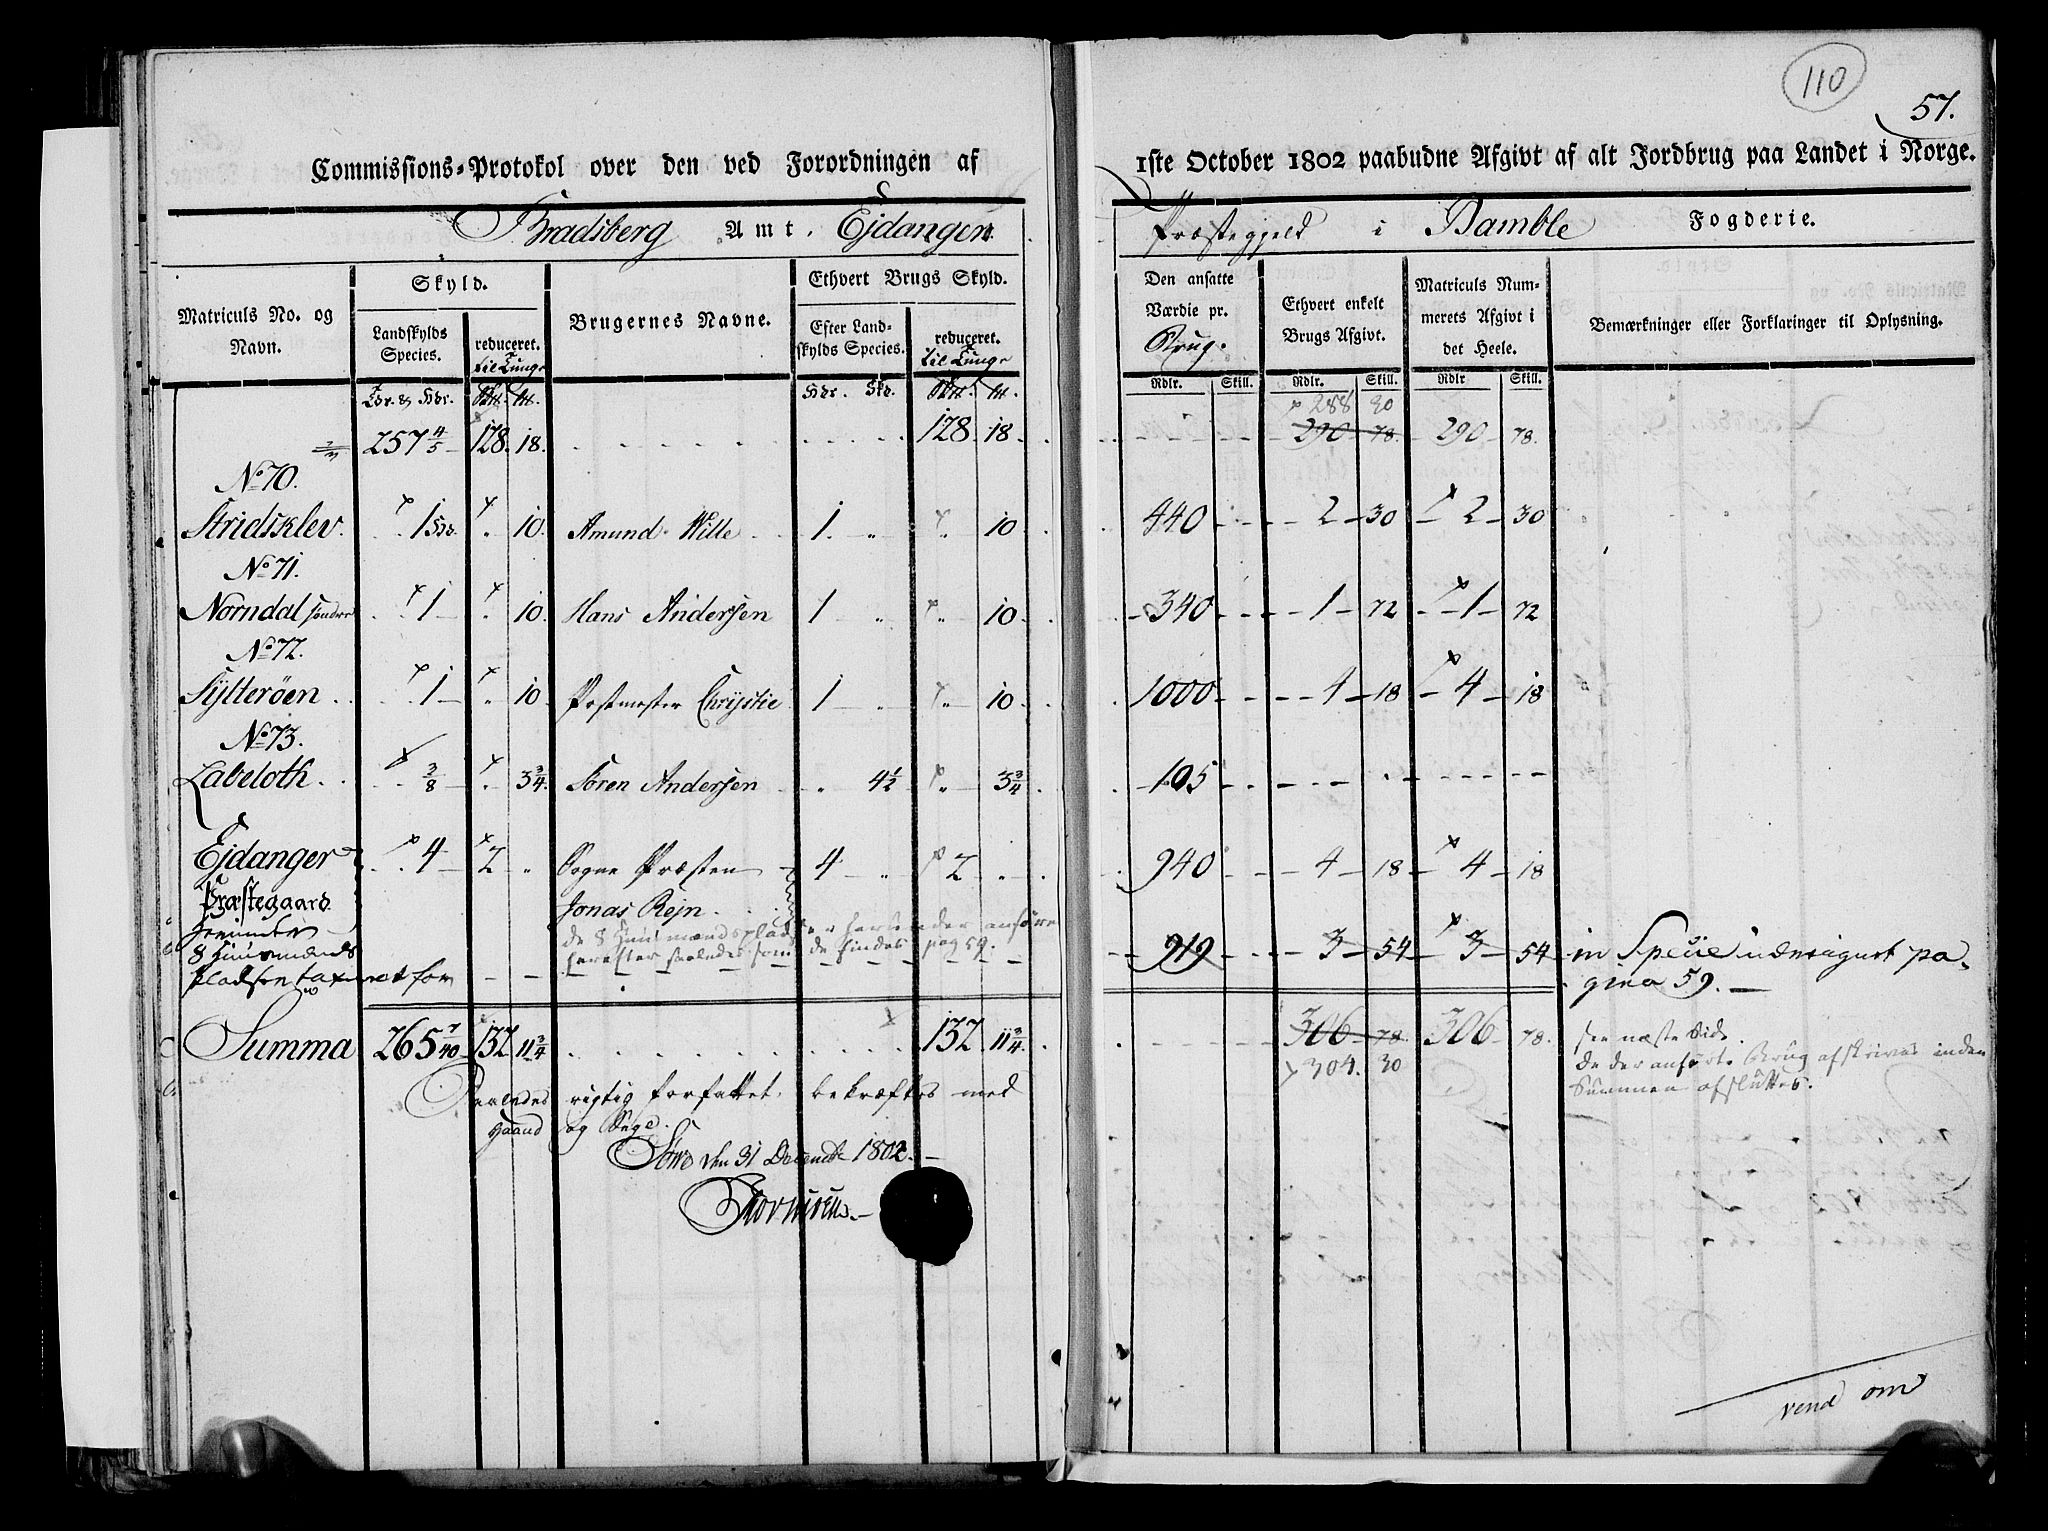 110
57.
Commissions-Protokol over den ved Forordningen af 1ste October 1802 paabudne Afgivt af alt Jordbrug paa Landet i Norge.
Bradsberg Amt. Ejdangen Præstegjeld i Bamble Fogderie.
Matriculs No. og Navn. Skyld. Brugernes Navne. Ethvert Brugs Skyld. Den ansatte Værdie pr. Brug. Ethvert enkelt Brugs Afgivt. Matriculs Nummerets Afgivt i det Heele. Bemærkninger eller Forklaringer til Oplysning.
Landskylds Species. reduceret. til Tunge Efter Landskylds Species. reduceret. til Tunge
Rdlr. Skill. Rdlr. Skill. Rdlr Skill.
288 90
257 4/5 128. 18. 128 18. 290 78. 290 78.
No 70.
Stridsklev. 1 10. Amund Wille 1. " " 10 440 2 30 2 30
No 71.
Nørndal søndre 1 " 10. Hans Andersen 1 " " 10 340 1 72 1 72
No 72.
Sylterøen 1 " 10 Postmester Christie 1 " " 10 1000 4 18 4 18
No 73.
Labeloth. 3/8 " 3 3/4. Søren Andersen " 4 1/2 " 3 3/4 105
Ejdanger 4 2 " Sogne Præsten 4 " 2 940 4 18 4 18
Præstegaard Jonas Rejn.
8 Huusmands de 8 Huusmandspladser herunder anføre 919 3 54 3 54 in Specie udersigust pa-
Pladser taxeret for herefter saaledes som de findes pag 59. gina 59.
Summa 265 7/40 132 11 3/4 132 11 3/4. 306 78. 306 78. see næste Side.
304. 30 de der anførte Brug afskrives inden
Summen afsluttes.
Saaledes rigtig forfattet, bekræftes med
Haand og Segl.
den 31 Decembr 1802.
vend om